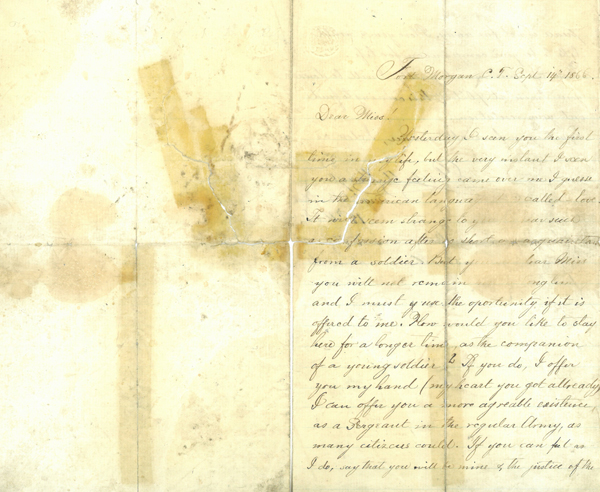 Fort Morgan C.T. Sept. 14th 1866.
Dear Miss.
Yesterday I seen you the first
time in life, but the very instant I seen
you a strange feeling came over me I guess
in the american language called love.
It will seem strange to you
after so short
from a soldier. But you dear Miss
you will not remain
and I must use the oportunity if it is
offered to me. How would you like to stay
here for a longer time, as the companion
of a young soldier? If you do, I offer
you my hand (my heart you got allready)
I can offer you a more agreable existence,
as a Sergeant in the regular Army, as
many citizens could. If you can feel as
I do, say that you will be mine & the justice of the